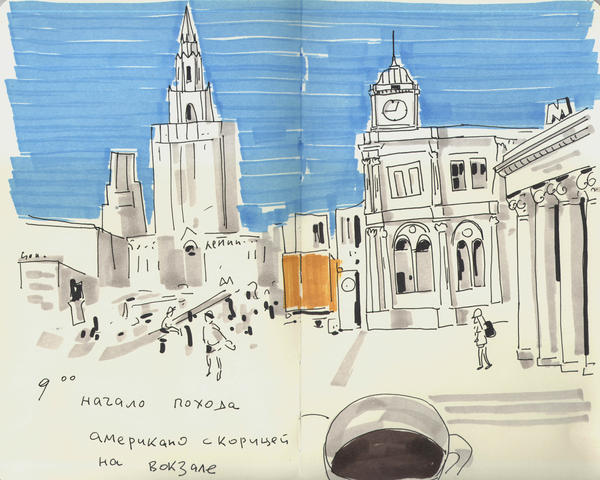 М
9 00
начало похода
американо с корицей
на вокзале